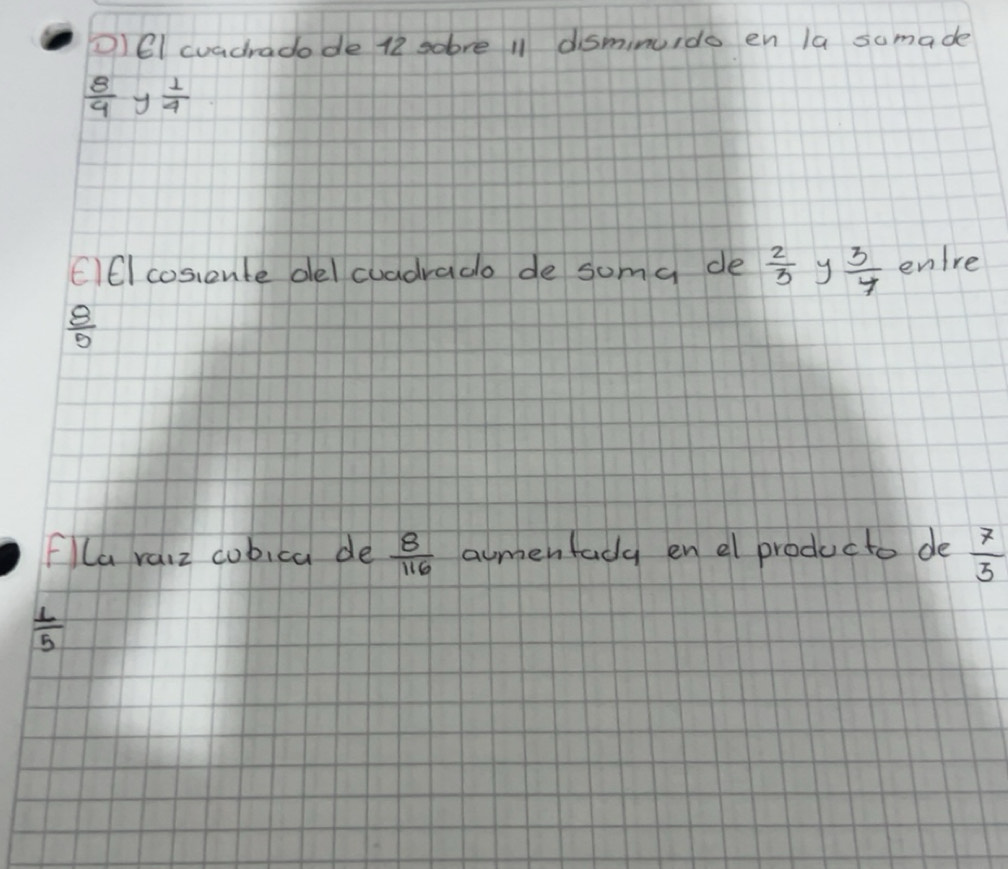 D) El cuadrado de 12 sobre 11 disminuido en la suma de
8/9 y 1/4
E) El cosiente del cuadrado de suma de 2/3 y 3/7 entre
8/5
F) La raiz cubica de 8/116 aumentada en el producto de 7/3
1/5